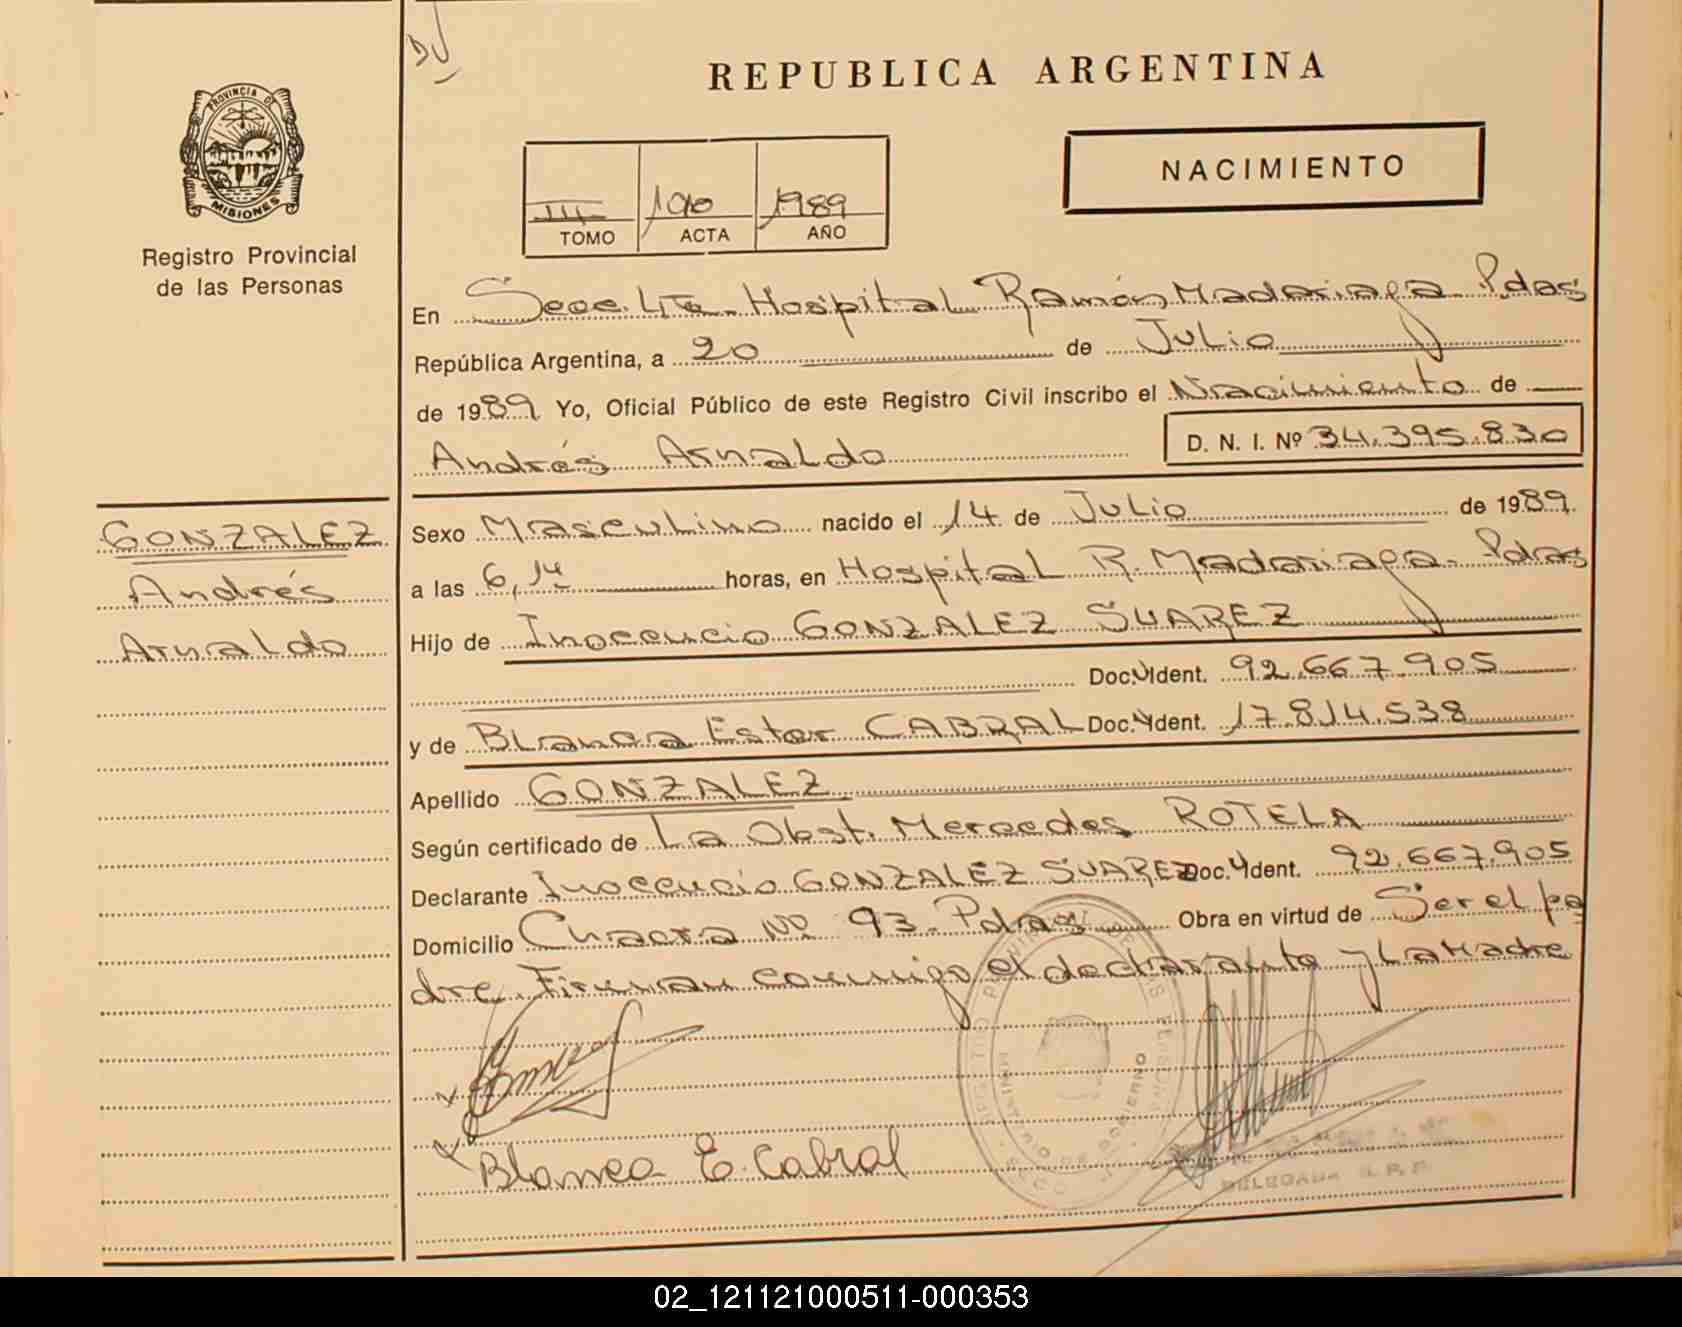 REPUBLICA ARGENTINA
PROVINCIA DE
MISIONES
Registro Provincial
de las Personas
NACIMIENTO
III 1989
TOMO ACTA AÑO
En Secc. 4ta. Hospital Ramón Madariaga Pdas
República Argentina, a 20 de Julio
de 1989 Yo, Oficial Público de este Registro Civil inscribo el Nacimiento de
Andrés Arnaldo D. N. I. Nº 34.395.830
GONZALEZ
Andrés
Arnaldo
Sexo Masculino nacido el 14 de Julio de 1989.
a las 6,14 horas, en Hospital R. Madariaga - Pdas
Hijo de Inocencio GONZALEZ SUAREZ
Doc. Ident. 92.667.905
y de Blanca Ester CABRAL Doc. Ident. 17.814.538
Apellido GONZALEZ
Según certificado de La Obst. Mercedes ROTELA
Declarante Inocencio GONZALEZ SUAREZ Doc. Ident. 92.667.905
Domicilio Chacra Nº 93. Pdas Obra en virtud de Ser el pa
dre. Firman conmigo el declarante y La Madre
Blanca E. Cabral
DELEGADA R. P. P.
02_121121000511-000353